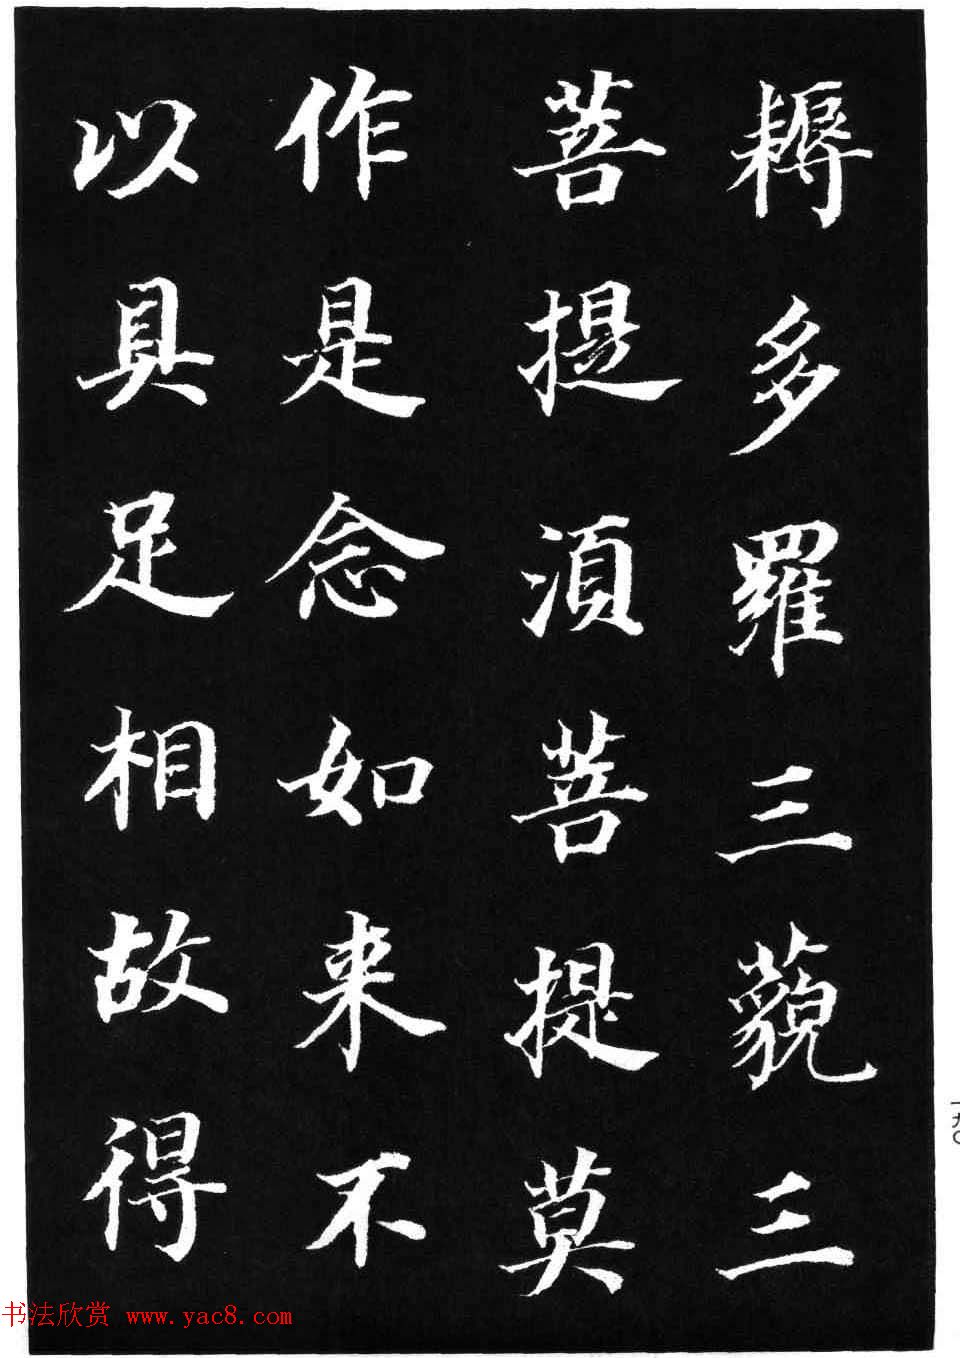 耨多羅三藐三
菩提湏菩提莫
作是念如来不
以具足相故得
一九〇
书法欣赏 www.yac8.com